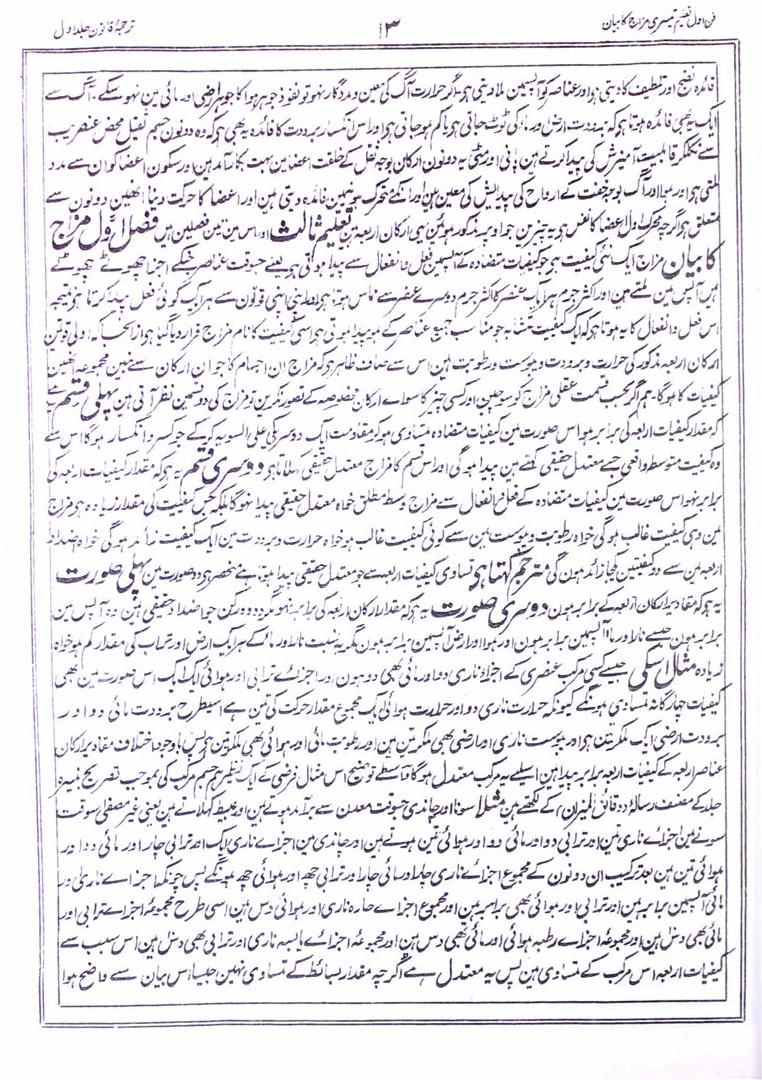 فن اول تعلیم تیسری مزاج کا بیان
۱۳
ترجمۂ قانون جلد اول
فائدہ نضج اور تلطیف کا دیتی ہے اور عناصر کو آپسمین ملا دیتی ہے۔ اگر حرارت آگ کی معین و مددگار نہو تو نفوذ جوہر ہوا کا جوہر ارضی اور مائی مین نہو سکے۔ آگ سے
ایک یہ بھی فائدہ ہوتا ہے کہ برودت ارض اور ماء کی ٹوٹ جاتی ہے یا کم ہو جاتی ہے اور اس انکسار برودت کا فائدہ یہ بھی ہے کہ وہ دونون جسم ثقیل محض عنصریت
سے نکلکر قابلیت آمیزش کی پیدا کرتے ہین پانی اور مٹی یہ دونون ارکان بوجہ ثقل کے خلقت اعضا مین بہت بکار آمد ہین اور سکون اعضا کو ان سے مدد
ملتی ہے اور ہوا اور آگ بوجہ خفت کے ارواح کی پیدایش کی معین ہین اور انکے متحرک ہونیمین فائدہ دیتی ہین اور اعضا کا حرکت دینا انھین دونون سے
متعلق ہے اگرچہ محرک اول اعضا کا نفس ہے یہ چیزین جو اوپر مذکور ہوئین یہی ارکان اربعہ ہین تعلیم ثالث اور اس مین تین فصلین ہین فصل اول مزاج
کا بیان مزاج ایک نئی کیفیت ہے جو کیفیات متضادہ کے آپسمین فعل و انفعال سے پیدا ہوتی ہے یعنے جسوقت عناصر جنکے اجزا چھوٹے چھوٹے
ہین آپس مین ملتے ہین اور اکثر جرم ہر ایک عنصر کا اکثر جرم دوسرے عنصر سے مماس ہوتا ہے اور اپنی اپنی قوتون سے ہر ایک کوئی فعل پیدا کرتا ہے نتیجہ
اس فعل و انفعال کا یہ ہوتا ہے کہ ایک کیفیت متشابہ جو مناسب جمیع عناصر کے ہو پیدا ہوتی ہے اسی کیفیت کا نام مزاج قرار دیا گیا ہے از انجا کہ اولی قوتین
ارکان اربعہ مذکور کی حرارت و برودت و یبوست و رطوبت ہین اس سے صاف ظاہر ہے کہ مزاج ان اجسام کا جو ان ارکان سے بنین مجموعہ انھین
کیفیات کا ہوگا۔ ہم اگر بحسب قسمت عقلی مزاج کو سوچین اور کسی چیز کا سواے ارکان مخصوصہ کے تصور نکرین تو مزاج کی دو قسمین نظر آتی ہین پہلی قسم یہ ہے
کہ مقدار کیفیات اربعہ کی برابر ہو اس صورت مین کیفیات متضادہ مساوی ہوکر مقاومت ایک دوسر کی علی السویہ کر کے جو کسر و انکسار ہوگا اس سے
وہ کیفیت متوسط واقعی جسے معتدل حقیقی کہتے ہین پیدا ہوگی اور اس قسم کا مزاج معتدل حقیقی کہلاتا ہے دوسری قسم یہ ہے کہ مقدار کیفیات اربعہ کی
برابر نہو اس صورت مین کیفیات متضادہ کے فعل و انفعال سے مزاج وسط مطلق خواہ معتدل حقیقی پیدا نہوگا بلکہ جس کیفیت کی مقدار زیادہ ہو مزاج
مین وہی کیفیت غالب ہوگی خواہ رطوبت و یبوست مین سے کوئی کیفیت غالب ہو خواہ حرارت و برودت مین ایک کیفیت زائد ہوگی خواہ اضداد
اربعہ مین سے دو کیفیتین یکجا زائد ہون گی مترجم کہتا ہے تساوی کیفیات اربعہ سے جو معتدل حقیقی پیدا ہوتا ہے منحصر ہے دو صورت مین پہلی صورت
یہ ہے کہ مقادیر ارکان اربعہ کے برابر ہون دوسری صورت یہ ہے کہ مقدار ارکان اربعہ کی برابر نہو مگر دو دو رکن جو اضداد حقیقی ہین وہ آپس مین
برابر ہون جیسے نار اور ماء آپسمین برابر ہون اور ہوا اور ارض آپسمین برابر ہون مگر بہ نسبت نار اور ماء کے ہر ایک ارض اور تراب کی مقدار کم ہو خواہ
زیادہ مثال اسکی جیسے کسی مرکب عنصری کے اجزاء ناری دو اور مائی بھی دو ہون اور اجزاے ترابی اور ہوائی ایک ایک اس صورت مین بھی
کیفیات چہارگانہ متساوی ہونگے کیونکہ حرارت ناری دو اور حرارت ہوائی ایک مجموع مقدار حرکت کی تین ہے اسیطرح برودت مائی دو اور
برودت ارضی ایک ملکر تین ہے اور یبوست ناری اور ارضی بھی ملکر تین ہین اور رطوبت مائی اور ہوائی بھی ملکر تین ہے پس باوجود اختلاف مقادیر ارکان
عناصر اربعہ کے کیفیات اربعہ برابر پیدا ہین اسلیے یہ مرکب معتدل ہوگا واسطے توضیح اس مثال فرضی کے ایک نظیر ہم جسم مرکب کی بموجب تصریح
جلد کے مصنف رسالۂ دقائق المیزان کے لکھتے ہین مثلا سونا اور چاندی جسوقت معدن سے برآمد ہوتے ہین اور غبیط کہلاتے ہین یعنی غیر مصفی سوقت
سونے مین اجزاے ناری تین اور ترابی دو اور مائی دو اور ہوائی تین ہوتے ہین اور چاندی مین اجزاے ناری ایک اور ترابی چار اور مائی دو اور
ہوائی تین ہین بعد ترکیب ان دونون کے مجموع اجزاے ناری چار اور مائی چار اور ترابی چھ اور ہوائی چھ ہونگے پس چونکہ اجزاے ناری اور
مائی آپسمین برابر ہین اور ترابی اور ہوائی بھی برابر ہین اور مجموع اجزاے حارہ ناری اور ہوائی دس ہین اسی طرح مجموعۂ اجزاے ترابی اور
مائی بھی دس ہین اور مجموعۂ اجزاے رطبہ ہوائی اور مائی بھی دس ہین اور مجموعۂ اجزاے یابسہ ناری اور ترابی بھی دس ہین اس سبب سے
کیفیات اربعہ اس مرکب کے متساوی ہین پس یہ معتدل ہے اگرچہ مقدار بسائط کے متساوی نہین جیسا اس بیان سے واضح ہوا